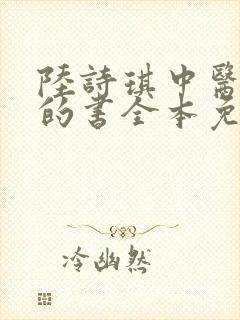 陸詩琪中醫
的書全本免
冷幽然